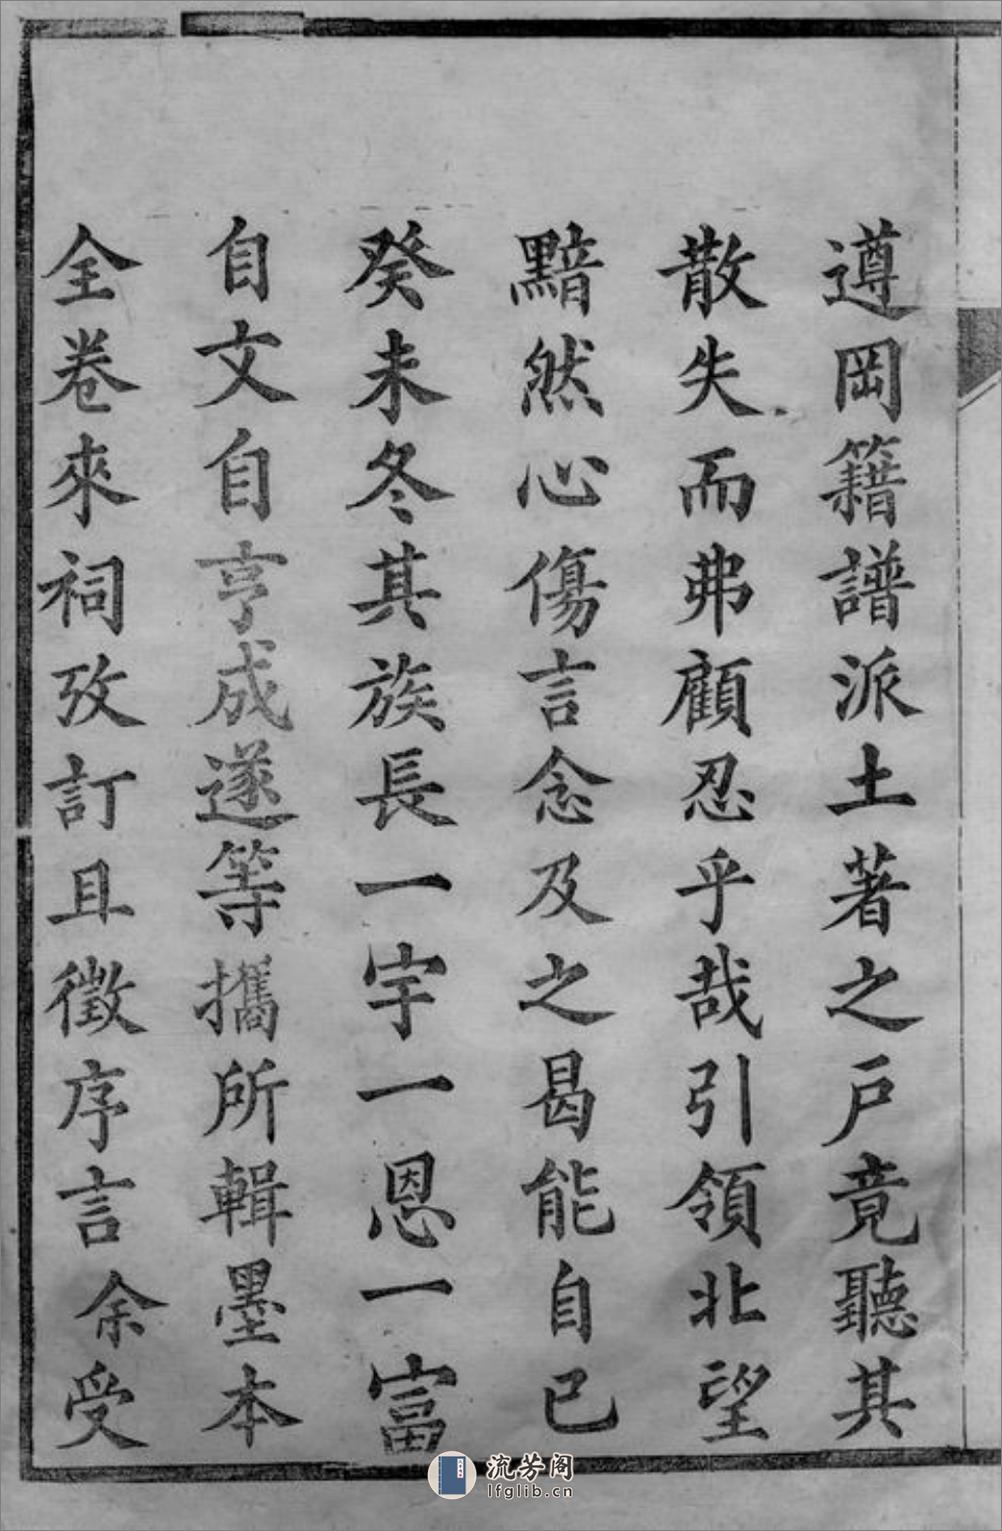 遵岡籍譜派土著之戶竟聽其
散失而弗顧忍乎哉引領北望
黯然心傷言念及之曷能自已
癸未冬其族長一宇一恩一富
自文自亨成遂等攜所輯墨本
全卷來祠攷訂且徵序言余受
流芳阁
lfglib.cn